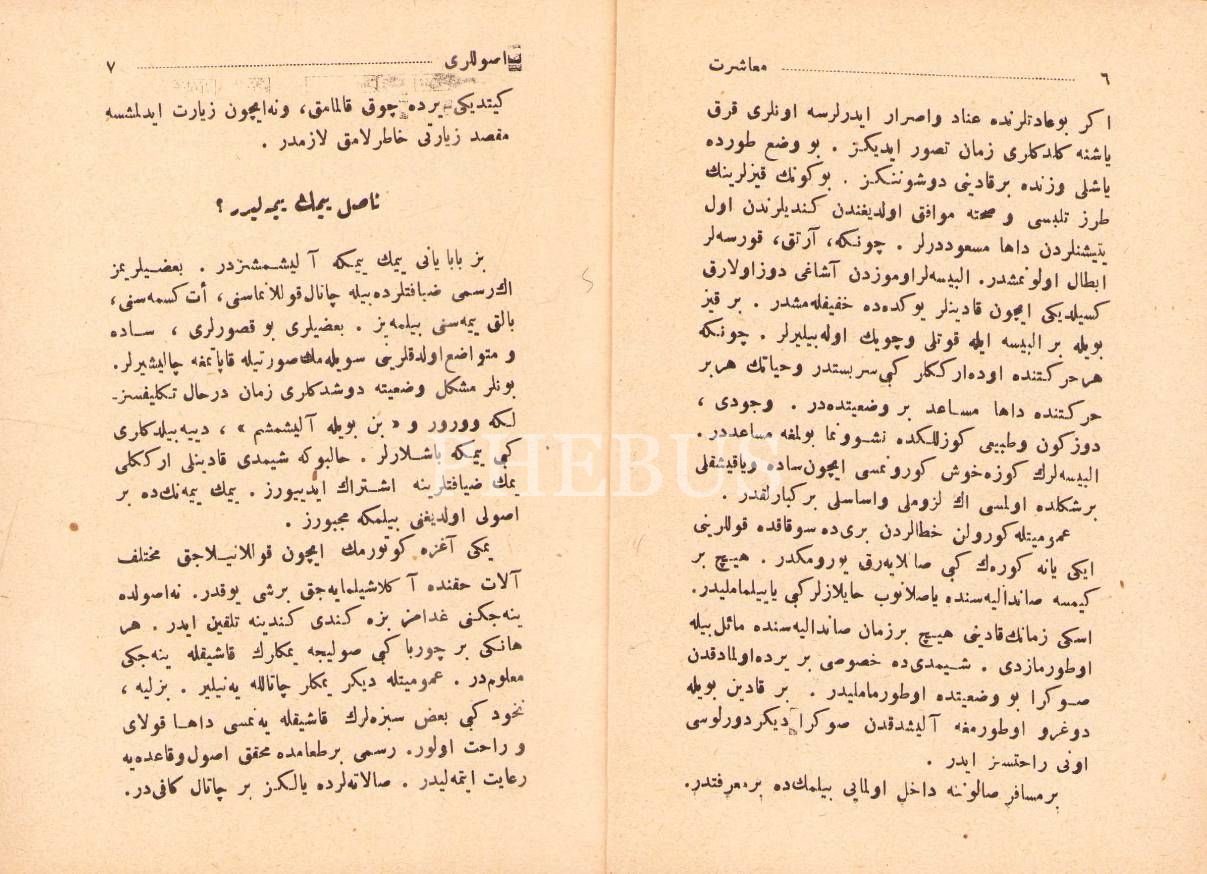 ٦ معاشرت
اكر بوعادتلرنده عناد واصرار ايدرلرسه اونلرى قرق
ياشنه كلدكلرى زمان تصور ايديكز . بو وضع طورده
ياشلى وزنده برقادينى دوشوننكز . بوكونك قيزلرينك
طرز تلبسى و صحته موافق اولديغندن كنديلرندن اول
يتيشنلردن داها مسعوددرلر . چونكه، آرتق، قورسه‌لر
ابطال اولونمشدر. البيسه‌لراوموزدن آشاغى دوزاولارق
كسيلديكى ايچون قادينلر يوكده‌ده خفيفله‌مشدر . بر قيز
بويله بر البيسه ايله قوتلى وچويك اوله‌بيليرلر . چونكه
هرحركتنده اوده‌اركك‌لر كبى سربستدر وحياتك هربر
حركتنده داها مساعد بر وضعيتده‌در . وجودى ،
دوزكون وطبيعى كوزللكده نشوونما بولمغه مساعددر.
البيسه‌لرك كوزه‌خوش كورونمسى ايچون‌ساده وياقيشقلى
برشكلده اولمسى اك لزوملى واساسلى بركبارلقدر .
عموميتله‌كورولن خطالردن برى‌ده سوقاقده قوللرينى
ايكى يانه كوره‌ك كبى صاللايه‌رق يورومكدر . هيچ بر
كيمسه صانداليه‌سنده ياصلانوب حايلازلركبى ياييلماملیدر.
اسكى زمانك‌قادينى هيچ برزمان صانداليه‌سنده مائل‌بيله
اوطورمازدى . شيمدى‌ده خصوصى بر يرده‌اولمادقدن
صوكرا بو وضعيتده اوطورماملیدر . بر قادين بويله
دوغرو اوطورمغه آليشدقدن صوكرا ديكردورلوسى
اونى راحتسز ايدر .
برمسافر صالوننه داخل اولمايى بيلمك‌ده برمعرفتدر.
اصوللرى ٧
كيتديكى يرده چوق قالمامق، ونه‌ايچون زيارت ايدلمشسه
مقصد زيارتى خاطرلامق لازمدر .
ناصل ييمك ييمه‌ليدر ؟
بز بابا يانى ييمك ييمكه آليشمشزدر . بعضيلريمز
اك‌رسمى ضيافتلرده‌بيله چاتال‌قوللانماسنى، أت كسمه‌سنى،
بالق ييمه‌سنى بيلمه‌يز . بعضيلرى بو قصورلرى ، ساده
و متواضع اولدقلرينى سويله‌مك‌صورتيله قاپاتمغه چاليشيرلر.
بونلر مشكل وضعيته دوشدكلرى زمان درحال تكليفسز-
لكه وورور و « بن بويله آليشمشم » ، دييه‌بيلدكلرى
كبى ييمكه باشلارلر . حالبوكه شيمدى قادينلى اركلكلى
يمك ضيافتلرينه اشتراك ايدييورز . ييمك ييمه‌نك‌ده بر
اصولى اولديغنى بيلمكه مجبورز .
يمكى آغزه كوتورمك ايچون قوللانيلاجق مختلف
آلات حقنده آ كلاشيلمايه‌جق برشى يوقدر. نه‌اصولده
ينه‌جكنى غدامز بزه كندى كندينه تلقين ايدر . هر
هانكى بر چوربا كبى صوليجه يمكلرك قاشيقله ينه‌جكى
معلوم‌در . عموميتله ديكر يمكلر چاتاللە يه‌نيلير . بزليه ،
نخود كبى بعض سبزه‌لرك قاشيقله يه‌نمسى داها قولاى
و راحت اولور. رسمى برطعامده محقق اصول‌وقاعده‌يه
رعايت ايتمه‌ليدر . صالاته‌لرده يالكز بر چاتال كافى‌در.
PHEBUS